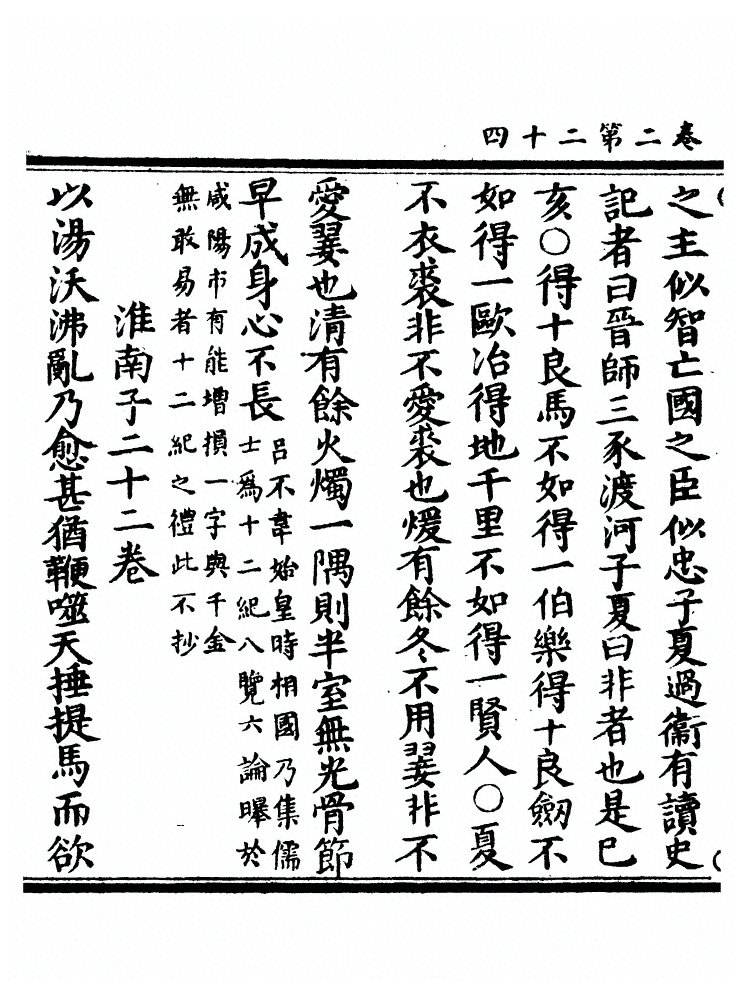 卷二第二十四
之主似智亡國之臣似忠子夏過衞有讀史
記者曰晉師三豕渡河子夏曰非者也是已
亥○得十良馬不如得一伯樂得十良劒不
如得一歐冶得地千里不如得一賢人○夏
不衣裘非不愛裘也煖有餘冬不用翣非不
愛翣也清有餘火燭一隅則半室無光骨節
早成身心不長
呂不韋始皇時相國乃集儒
士爲十二紀八覽六論曝於
咸陽市有能增損一字與千金
無敢易者十二紀之禮此不抄
淮南子二十二卷
以湯沃沸亂乃愈甚猶鞭噬天捶提馬而欲